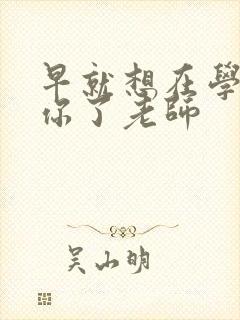 早就想在學
你了老師
吳山明